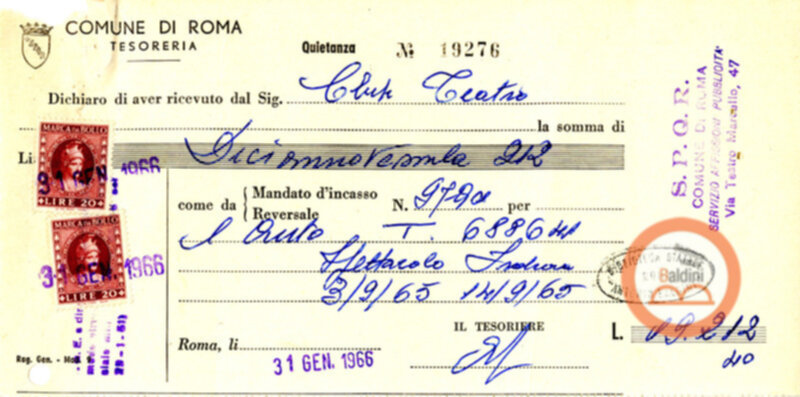 COMUNE DI ROMA
TESORERIA
Quietanza № 19276
Dichiaro di aver ricevuto dal Sig. Club Teatro
la somma di
Li Diciannovemila 212
come da Mandato d'incasso
Reversale
N. 979a per
T. 68864
Spettacolo
3/9/65 14/9/65
IL TESORIERE
L. 19.212
40
Roma, li 31 GEN. 1966
Reg. Gen. - Mod.
MARCA DA BOLLO
31 GEN. 1966
LIRE 20
MARCA DA BOLLO
31 GEN. 1966
LIRE 20
S.P.Q.R.
COMUNE DI ROMA
SERVIZIO AFFISSIONI PUBBLICITÀ
Via Teatro Marcello, 47
Baldini